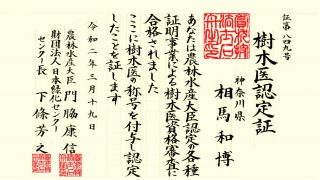 証第八四九号
樹木医認定証
神奈川県
相馬和博
あなたは農林水産大臣認定の各種
証明事業による樹木医資格審査に
合格されました
ここに樹木医の称号を付与し認定
したことを証します
令和二年三月十九日
農林水産大臣
門脇康信
財団法人日本緑化センター
センター長 下條芳之